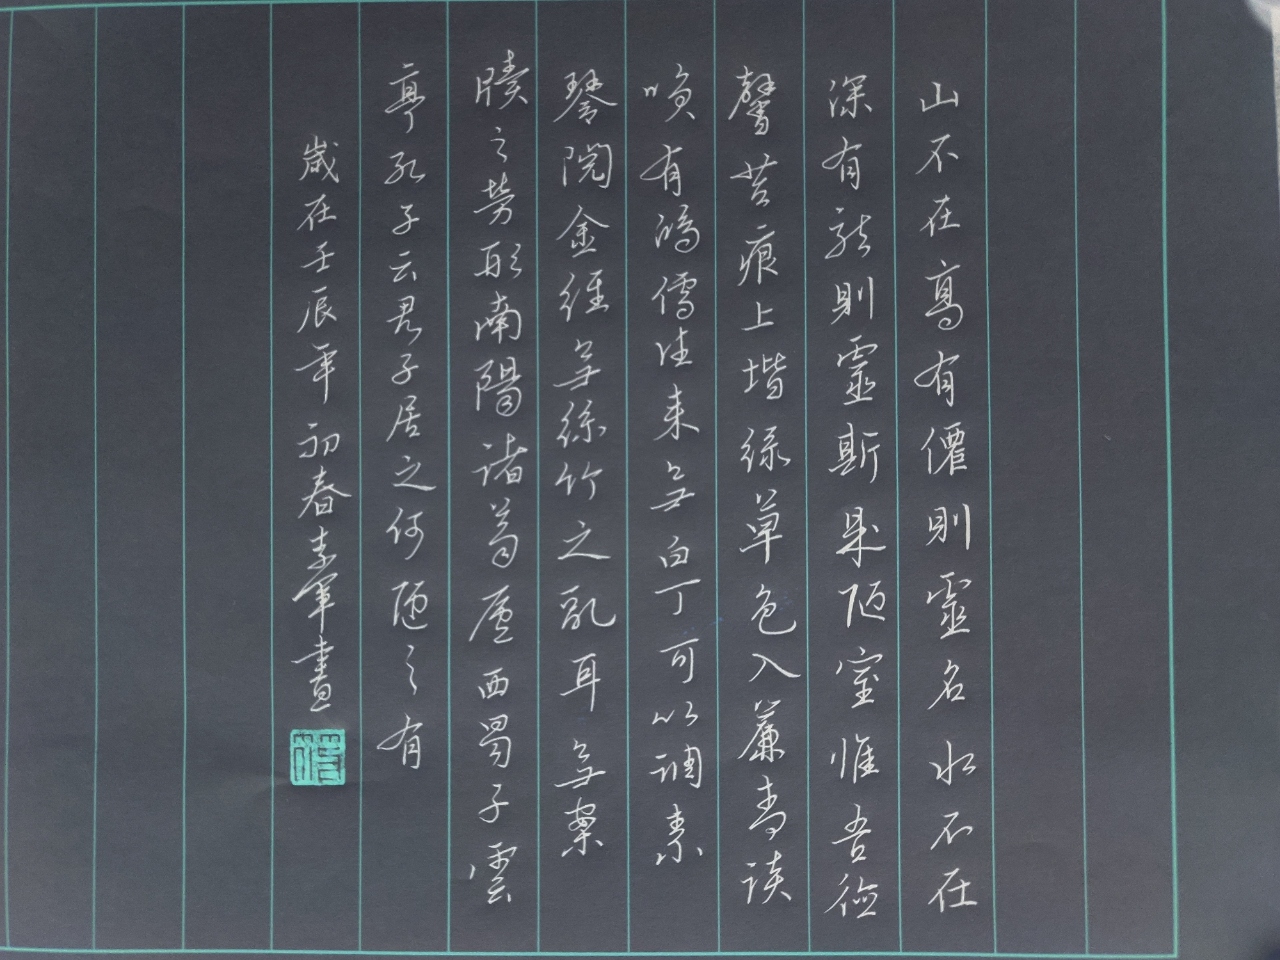 山不在高有僊則靈名水不在
深有龍則靈斯是陋室惟吾德
馨苔痕上堦綠草色入簾青談
咲有鴻儒往來無白丁可以調素
琴閱金經無絲竹之亂耳無案
牘之勞形南陽諸葛廬西蜀子雲
亭孔子云君子居之何陋之有
歲在壬辰年初春軍書